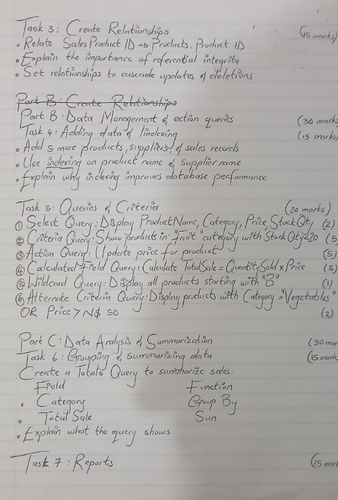 Task 3: Create Relationships (15 marks)
• Relate Sales Product ID → Products. Product ID
• Explain the importance of referential integrity
• Set relationships to cascade updates & deletions
Part B: Create Relationships
Part B: Data Management & action queries (30 marks
Task 4: Adding data & Indexing (15 marks
• Add 5 more products, suppliers, & sales records
• Use indexing on product name & supplier name
• Explain why indexing improves database performance
Task 5: Queries & Criteria (20 marks)
① Select Query: Display ProductName, Category, Price, StockQty (2)
② Criteria Query: Show products in "Fruit" category with StockQty>20 (5)
③ Action Query: Update price for product (5)
④ Calculated Field Query: Calculate TotalSale = QuantitySold x Price (5)
⑤ Wildcard Query: Display all products starting with "B" (1)
⑥ Alternate Criteria Query: Display products with Category = "Vegetables"
OR Price > N$ 50 (2)
Part C: Data Analysis & Summarization (30 mar
Task 6: Grouping & summarizing data (15 mark
Create a Totals Query to summarize sales:
Field Function
• Category Group By
• Total Sale Sum
• Explain what the query shows
Task 7: Reports (15 mark